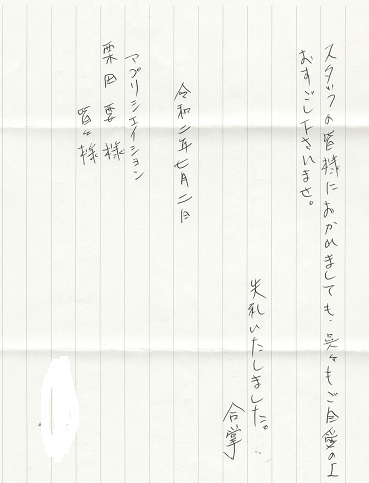 スタッフの皆様におかれましても、呉々もご自愛の上
おすごし下さいませ。
失礼いたしました。
合掌
令和二年七月二日
アプリシエイション
栗田要様
皆々様